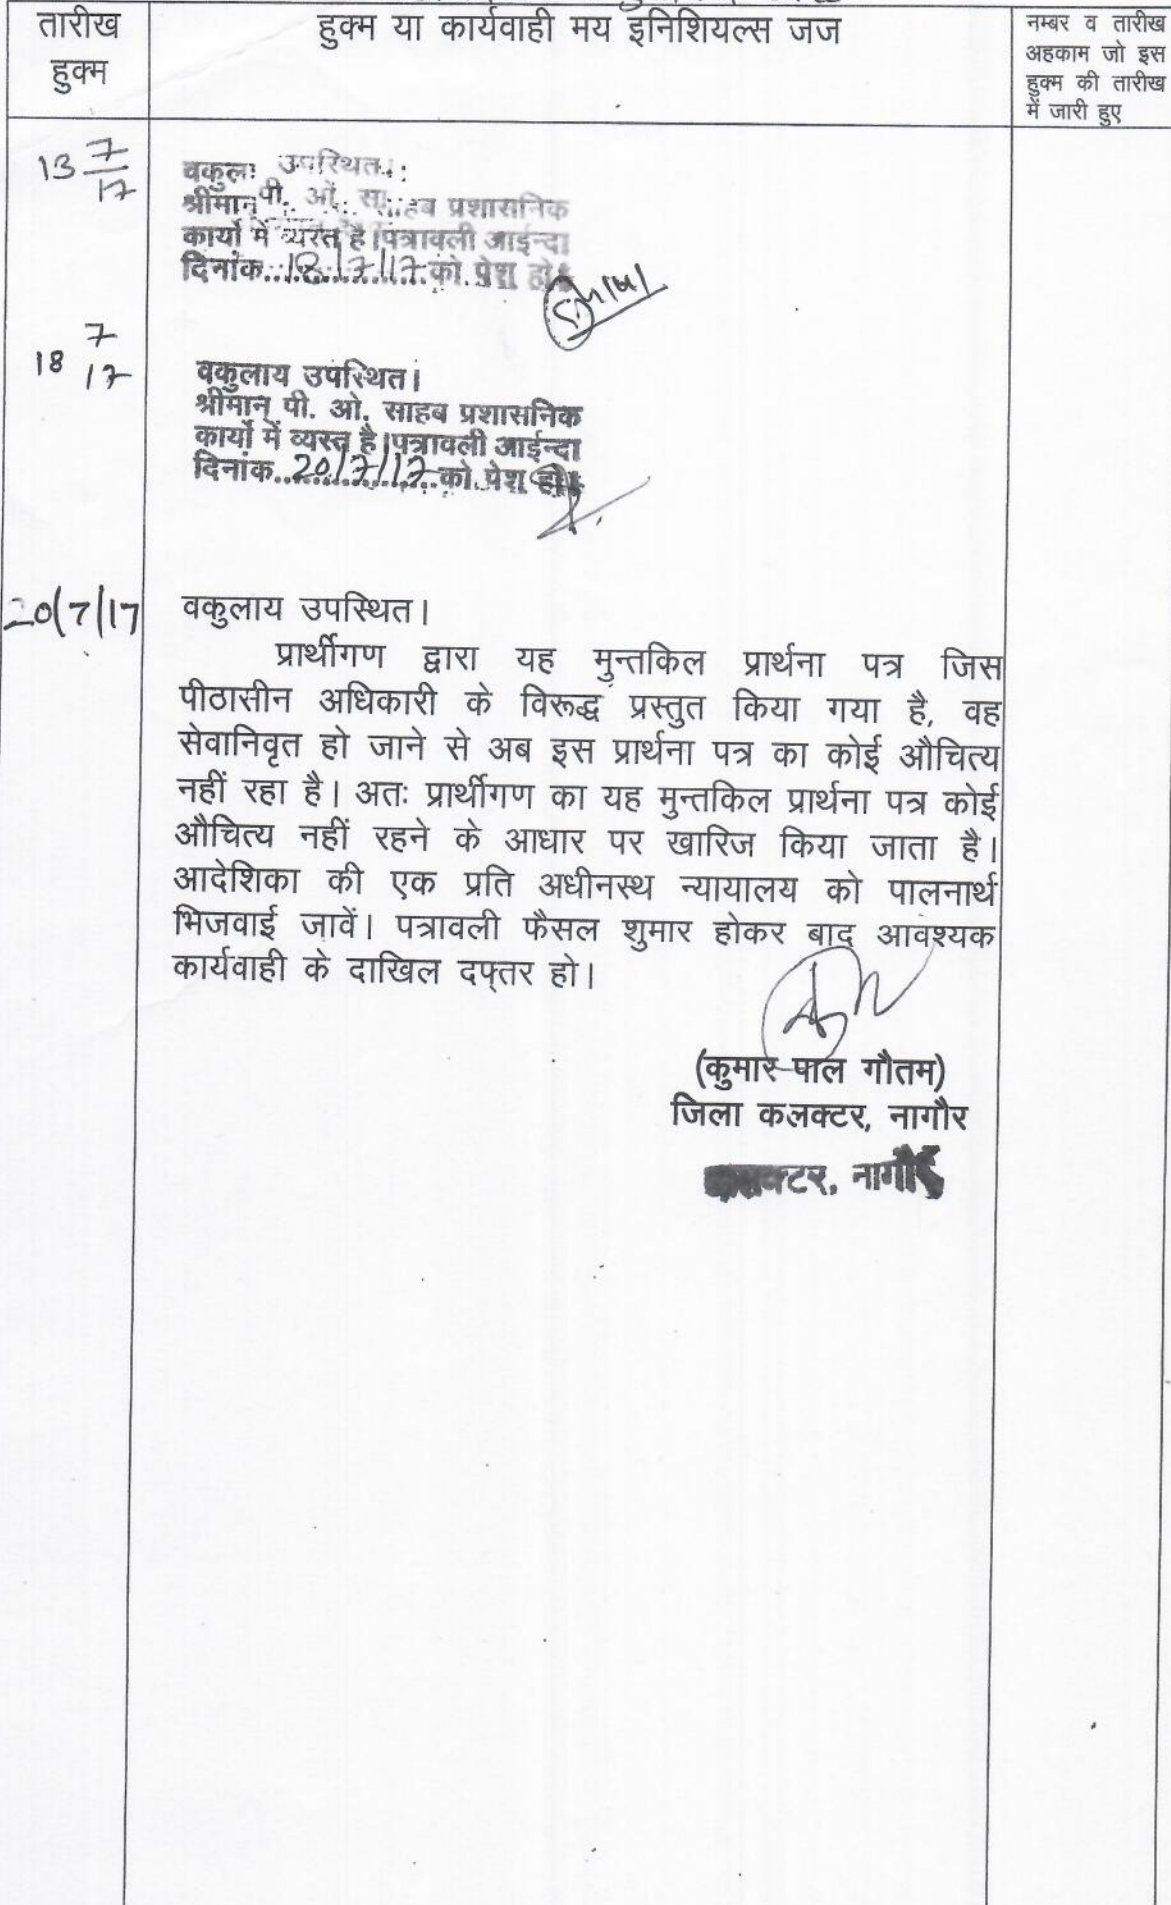 तारीख
हुक्म
हुक्म या कार्यवाही मय इनिशियल्स जज
नम्बर व तारीख
अहकाम जो इस
हुक्म की तारीख
में जारी हुए
13 7/17
उपस्थित
श्रीमान पी. ओ. साहब प्रशासनिक
कार्यो में व्यस्त है।पत्रावली आईन्दा
दिनांक..18/7/17..को पेश हो।
18 7/17
वकुलाय उपस्थित।
श्रीमान् पी. ओ. साहब प्रशासनिक
कार्यो में व्यस्त है।पत्रावली आईन्दा
दिनांक..20/7/17..को पेश हो।
20/7/17
वकुलाय उपस्थित।
प्रार्थीगण द्वारा यह मुन्तकिल प्रार्थना पत्र जिस
पीठासीन अधिकारी के विरूद्ध प्रस्तुत किया गया है, वह
सेवानिवृत हो जाने से अब इस प्रार्थना पत्र का कोई औचित्य
नहीं रहा है। अतः प्रार्थीगण का यह मुन्तकिल प्रार्थना पत्र कोई
औचित्य नहीं रहने के आधार पर खारिज किया जाता है।
आदेशिका की एक प्रति अधीनस्थ न्यायालय को पालनार्थ
भिजवाई जावें। पत्रावली फैसल शुमार होकर बाद आवश्यक
कार्यवाही के दाखिल दफ्तर हो।
(कुमार पाल गौतम)
जिला कलक्टर, नागौर
कलक्टर, नागौर